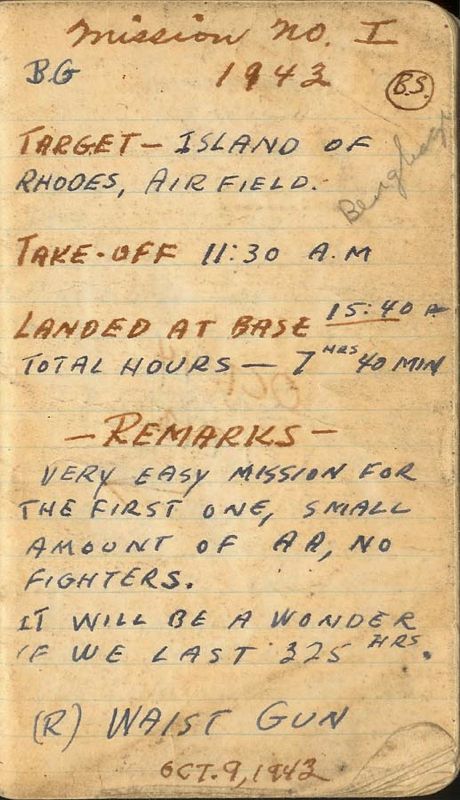 Mission No. I
BG 1943 B.S.
TARGET - ISLAND OF
RHODES, AIR FIELD.
TAKE-OFF 11:30 A.M
LANDED AT BASE 15:40
TOTAL HOURS - 7 HRS 40 MIN
- REMARKS -
VERY EASY MISSION FOR
THE FIRST ONE, SMALL
AMOUNT OF AA, NO
FIGHTERS.
IT WILL BE A WONDER
IF WE LAST 325 HRS.
(R) WAIST GUN
OCT. 9, 1943